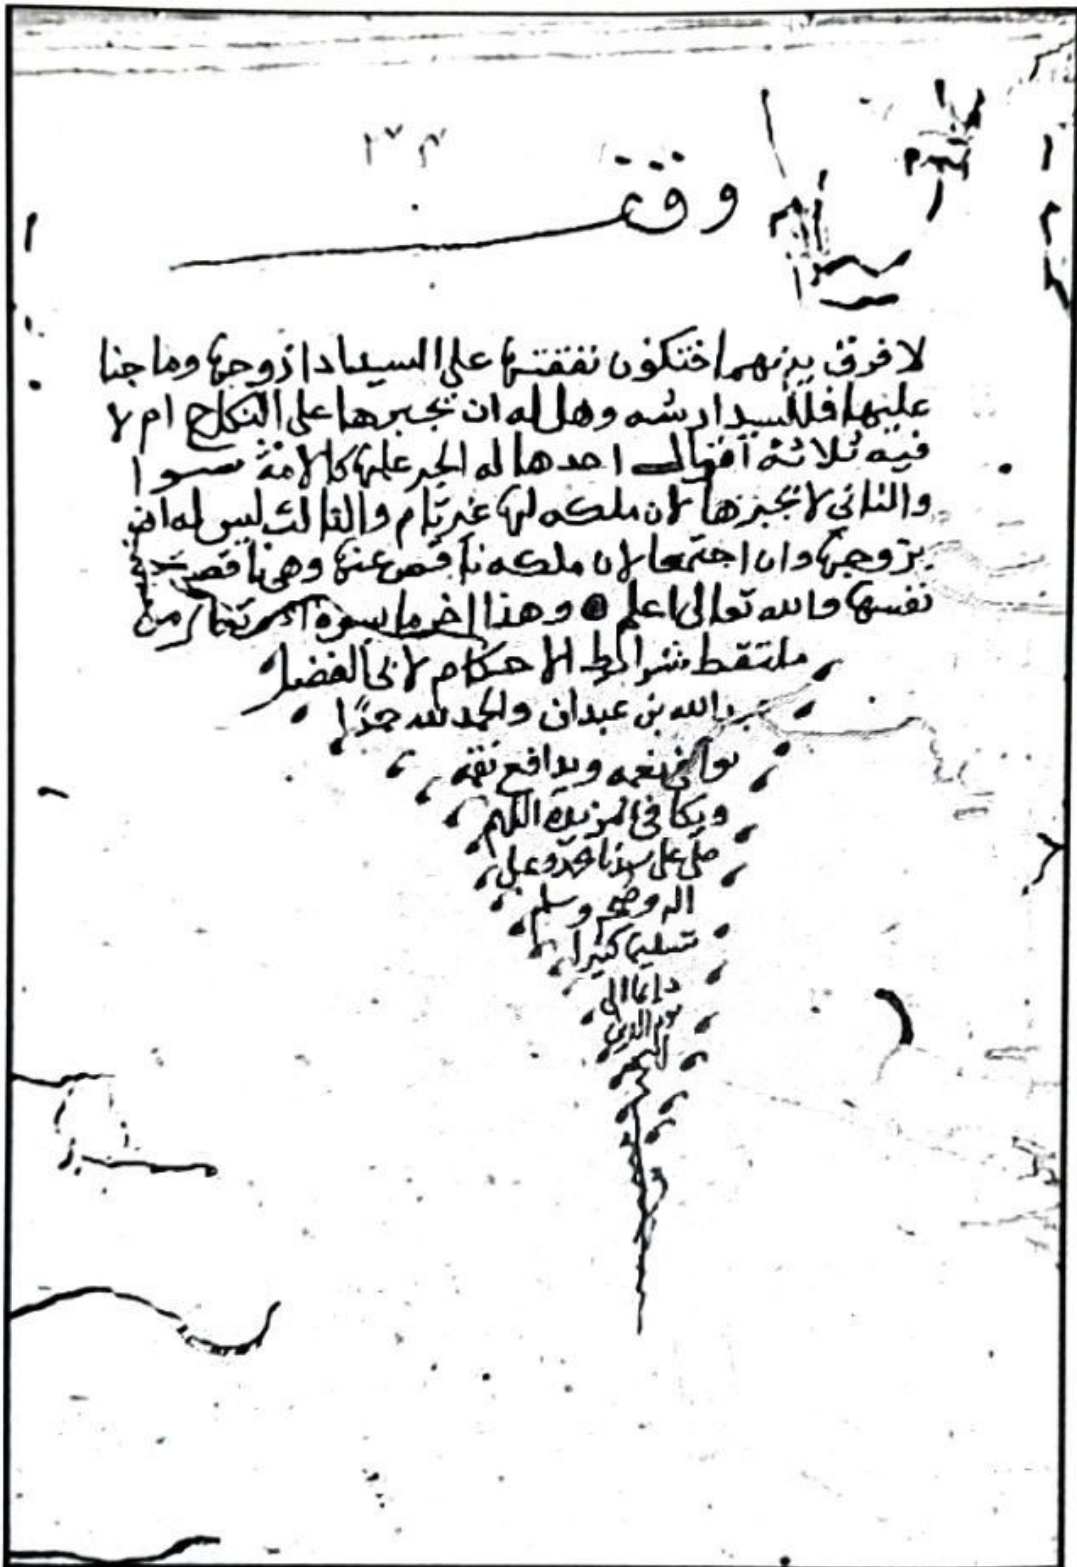 وقف
لا فرق بينهما فتكون نفقتها على السيد اذا زوجها وما جنا
عليها فللسيد ارشه وهل له ان يجبرها على النكاح ام لا
فيه ثلاثة اقوال احدها له الجبر عليها كالامة سوا
والثاني لا يجبرها لان ملكه لها غير تام والثالث ليس له ان
يزوجها وان اجتمعا لان ملكه ناقص عنها وهي ناقصة
نفسها والله تعالى اعلم وهذا اخر ما من
ملتقط شرائط الاحكام لابي الفضل
عبد الله بن عبدان والحمد لله حمدًا
يوافي نعمه ويدافع نقمه
ويكافي مزيده اللهم
صلى على سيدنا محمد وعلى
اله وصحبه وسلم
تسليما كثيرا
دايما الى
يوم الدين